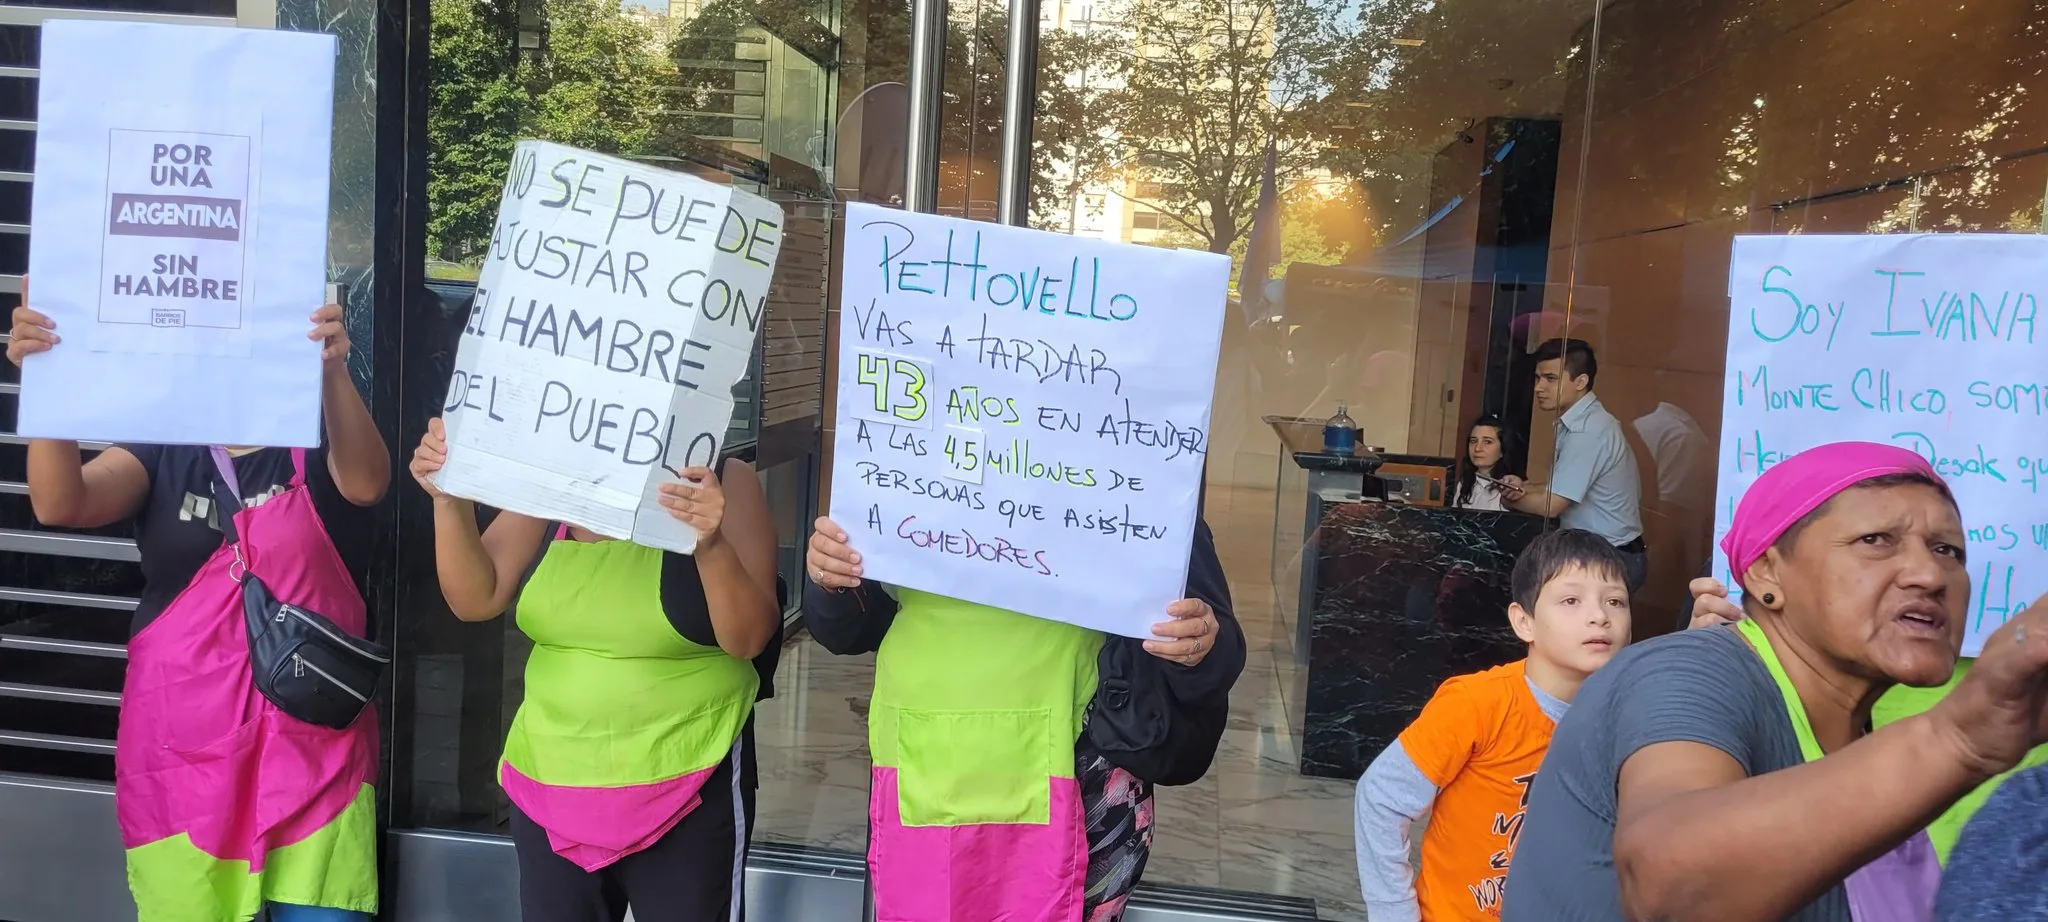 POR
UNA
ARGENTINA
SIN
HAMBRE
BARRIOS
DE PIE
NO SE PUEDE
AJUSTAR CON
EL HAMBRE
DEL PUEBLO
Pettovello
VAS A TARDAR
43 AÑOS EN ATENDER
A LAS 4,5 millones DE
PERSONAS QUE ASISTEN
A COMEDORES.
Soy IVANA
MONTE CHICO, SOM
Desak qu
mos